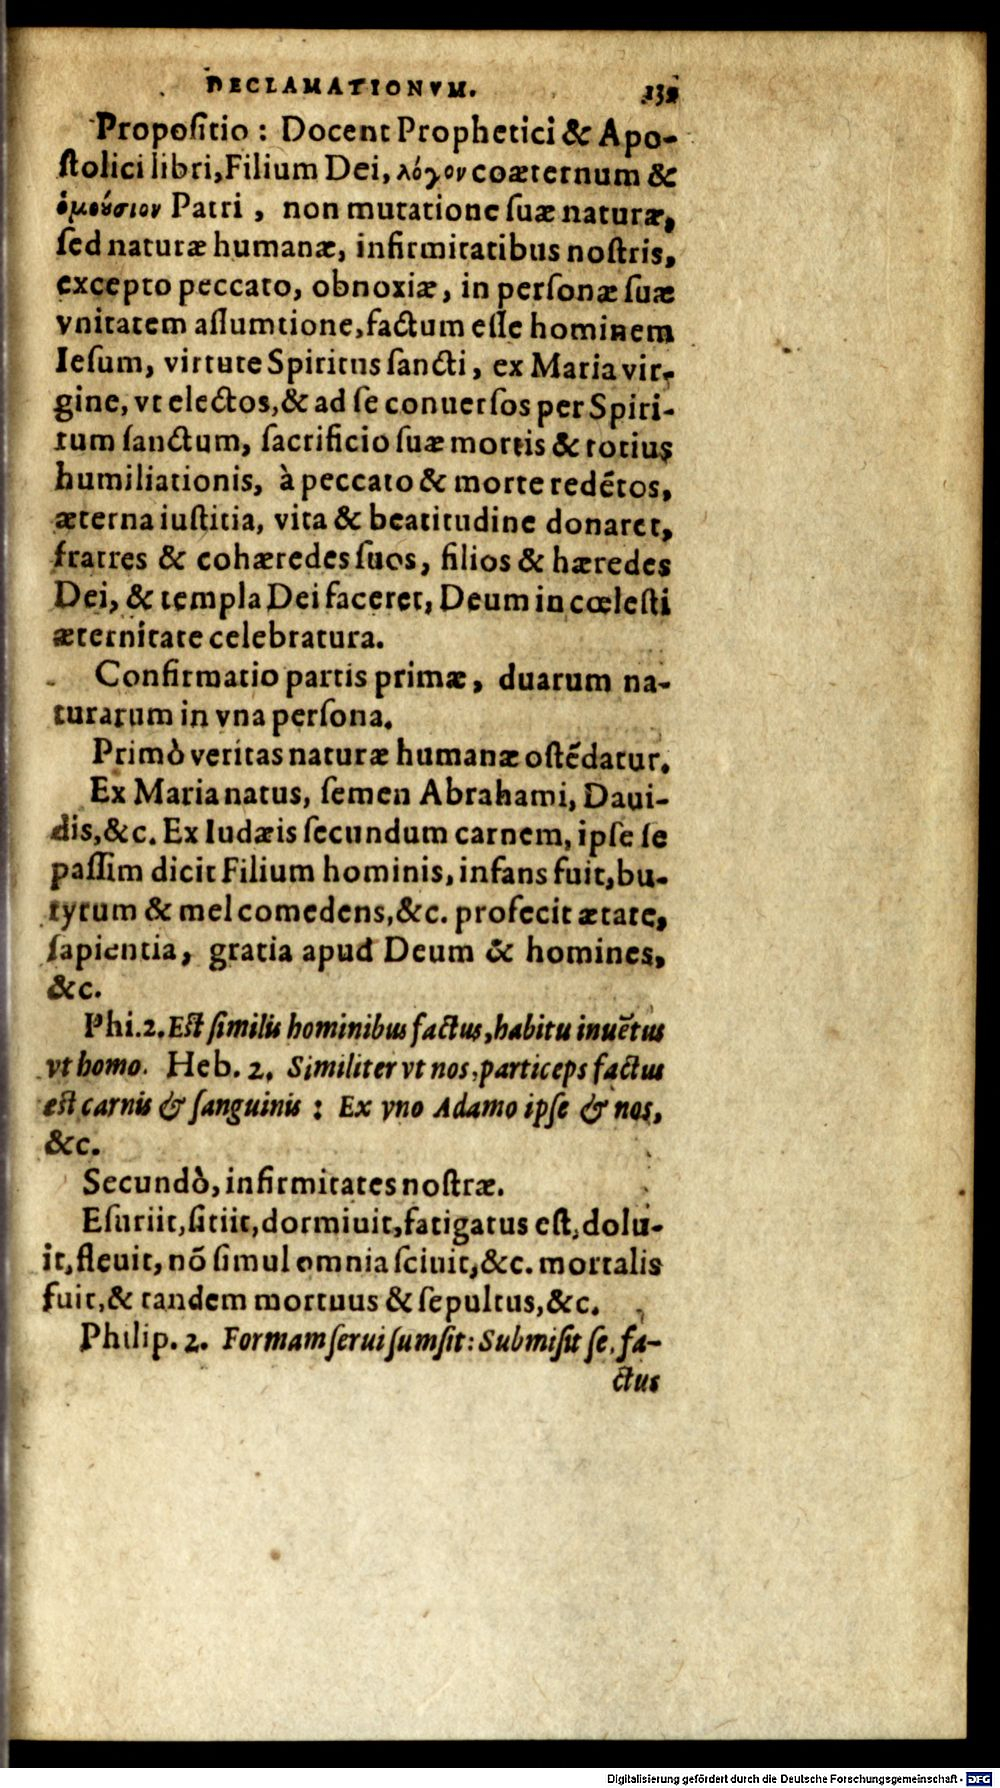 DECLAMATIONVM.
Propoſitio : Docent Prophetici & Apo-
ſtolici libri, Filium Dei, λόγον coæternum &
ὁμούσιον Patri , non mutatione ſuæ naturæ,
ſed naturæ humanæ, infirmitatibus noſtris,
excepto peccato, obnoxiæ, in perſonæ ſuæ
vnitatem aſſumtione, factum eſſe hominem
Ieſum, virtute Spiritus ſancti, ex Maria vir-
gine, vt electos, & ad ſe conuerſos per Spiri-
tum ſanctum, ſacrificio ſuæ mortis & totius
humiliationis, à peccato & morte redẽtos,
æterna iuſtitia, vita & beatitudine donaret,
fratres & cohæredes ſuos, filios & hæredes
Dei, & templa Dei faceret, Deum in cœleſti
æternitate celebratura.
Confirmatio partis primæ, duarum na-
turarum in vna perſona.
Primò veritas naturæ humanæ oſtẽdatur.
Ex Maria natus, ſemen Abrahami, Daui-
dis, &c. Ex Iudæis ſecundum carnem, ipſe ſe
paſſim dicit Filium hominis, infans fuit, bu-
tyrum & mel comedens, &c. profecit ætate,
ſapientia, gratia apud Deum & homines,
&c.
Phi. 2. Eſt ſimilis hominibus factus, habitu inuẽtus
vt homo. Heb. 2. Similiter vt nos, particeps factus
eſt carnis & ſanguinis : Ex vno Adamo ipſe & nos,
&c.
Secundò, infirmitates noſtræ.
Eſuriit, ſitiit, dormiuit, fatigatus eſt, dolu-
it, fleuit, nõ ſimul omnia ſciuit, &c. mortalis
fuit, & tandem mortuus & ſepultus, &c.
Philip. 2. Formam ſerui ſumſit: Submiſit ſe, fa-
ctus
Digitalisierung gefördert durch die Deutsche Forschungsgemeinschaft - DFG